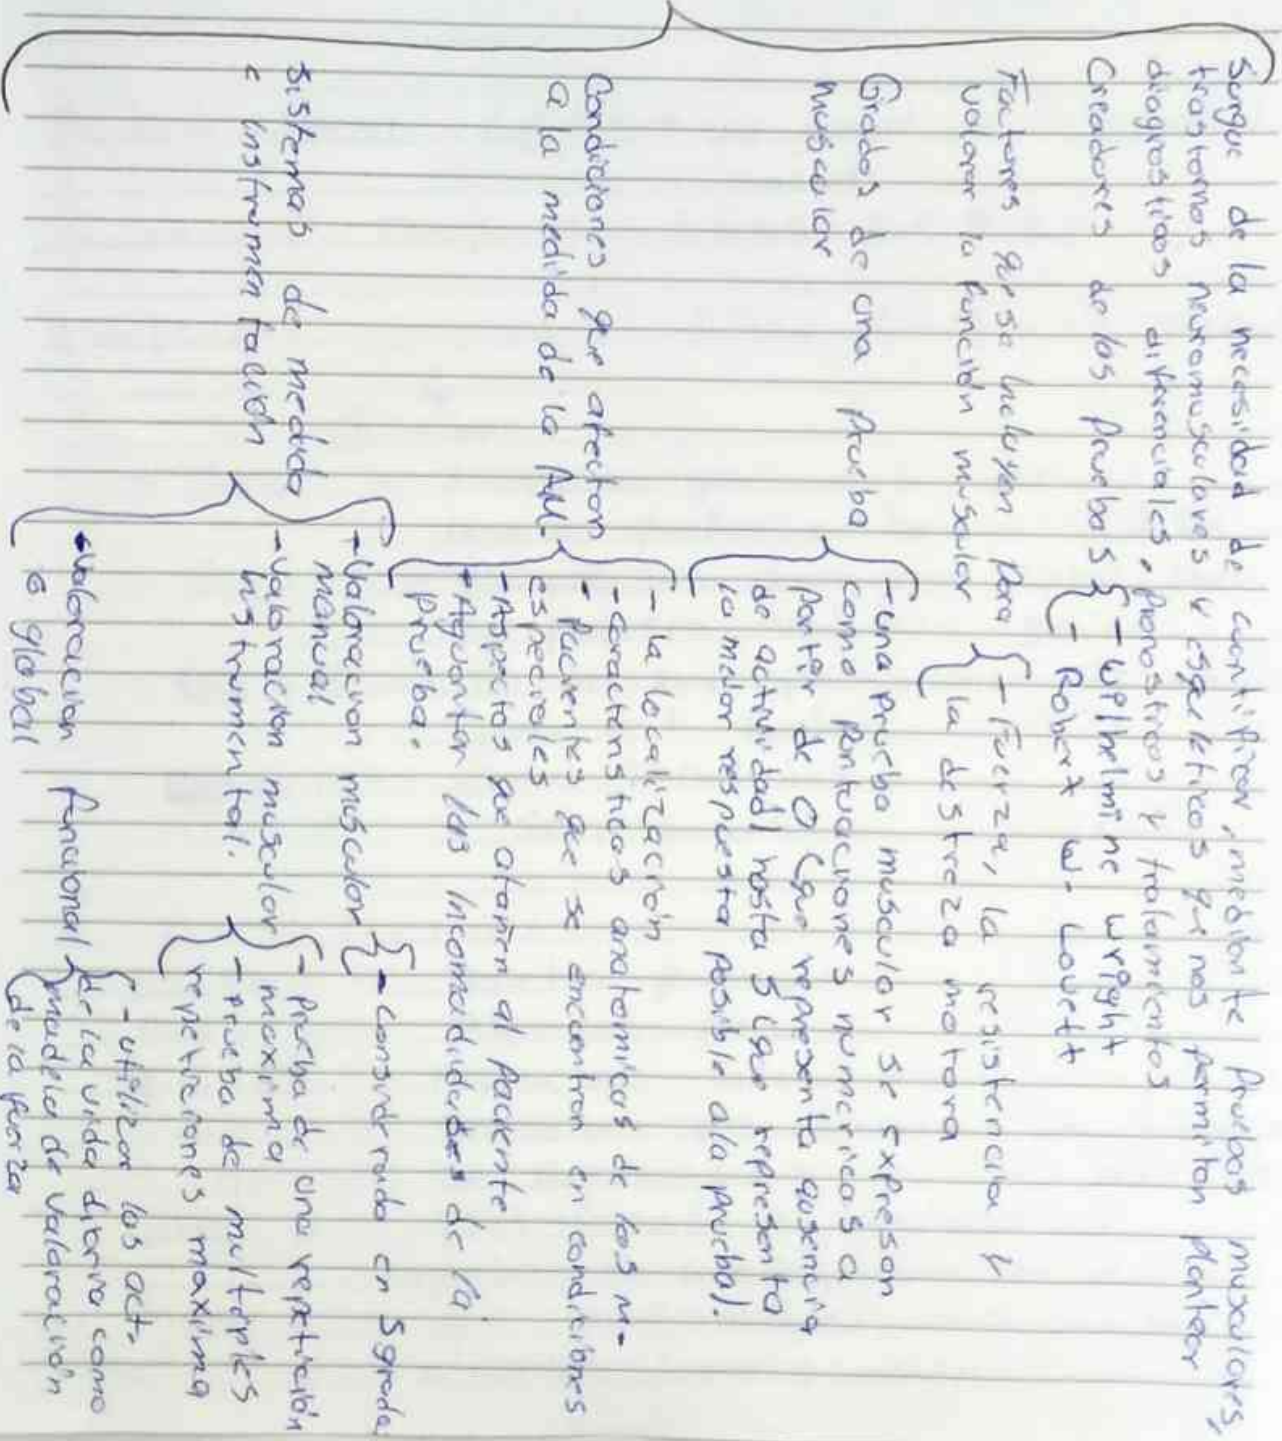 Surge de la necesidad de cuantificar, mediante Pruebas musculares,
trastornos neuromusculares y esqueléticos que nos permitan plantear
diagnosticos diferenciales, pronostricos y tratamientos
Creadores de las Pruebas
- Wilhelmine Wright
- Robert W. Lovett
Factores que se incluyen Para
valorar la función muscular
- Fuerza, la resistencia y
la destreza motora
Grados de una Prueba
muscular
- una prueba muscular se expresan
como Puntuaciones numericas a
Partir de 0 (que representa ausencia
de actividad) hasta 5 (que representa
la mejor respuesta posible ala prueba).
Condiciones que afectan
a la medida de la AM.
- la localización
- caracteristicas anatomicas de los M-
- Pacientes que se encuentran en condiciones
especiales
- Aspectos que atañen al Paciente
- Aguantar las incomodidades de la
prueba.
Sistemas de medida
e instrumentación
- Valoracion muscular
manual
- considerado en 5 grados
- Valoración muscular
instrumental.
- prueba de una repetición
maxima
- Prueba de multiples
repeticiones maxima
- Valoracion funcional
o global
- utilizar las act.
de la vida diaria como
modelo de valoración
de la fuerza